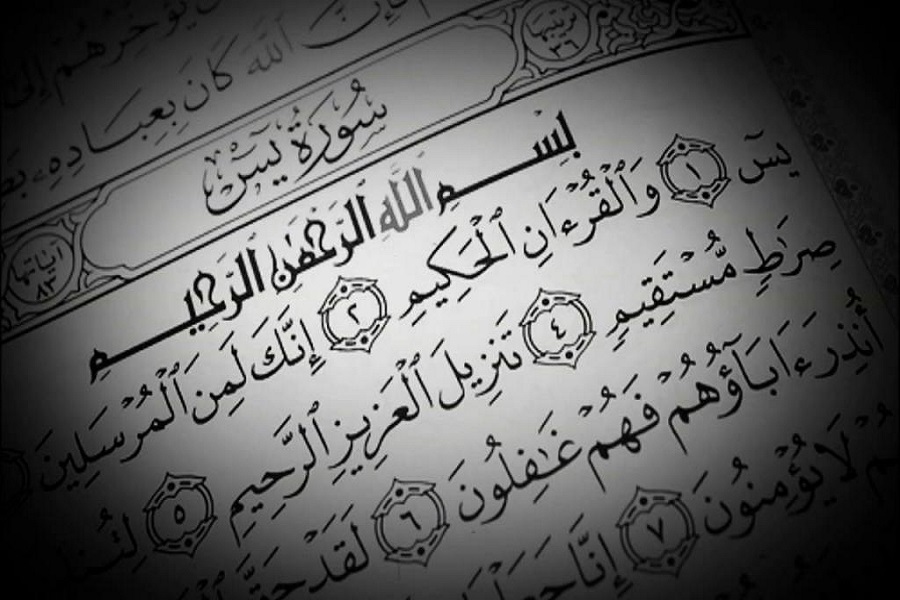 يُؤَخِّرُهُمْ إِلَىٰ
فَإِنَّ ٱللَّهَ كَانَ بِعِبَادِهِۦ
سُورَةُ يسٓ
ترتيبها ٣٦
آياتها ٨٣
بِسْمِ ٱللَّهِ ٱلرَّحْمَٰنِ ٱلرَّحِيمِ
يسٓ ١ وَٱلْقُرْءَانِ ٱلْحَكِيمِ ٢ إِنَّكَ لَمِنَ ٱلْمُرْسَلِينَ
صِرَٰطٍ مُّسْتَقِيمٍ ٤ تَنزِيلَ ٱلْعَزِيزِ ٱلرَّحِيمِ ٥
أُنذِرَ ءَابَآؤُهُمْ فَهُمْ غَٰفِلُونَ ٦ لَقَدْ حَقَّ
لَا يُؤْمِنُونَ ٧ إِنَّا جَعَلْنَا